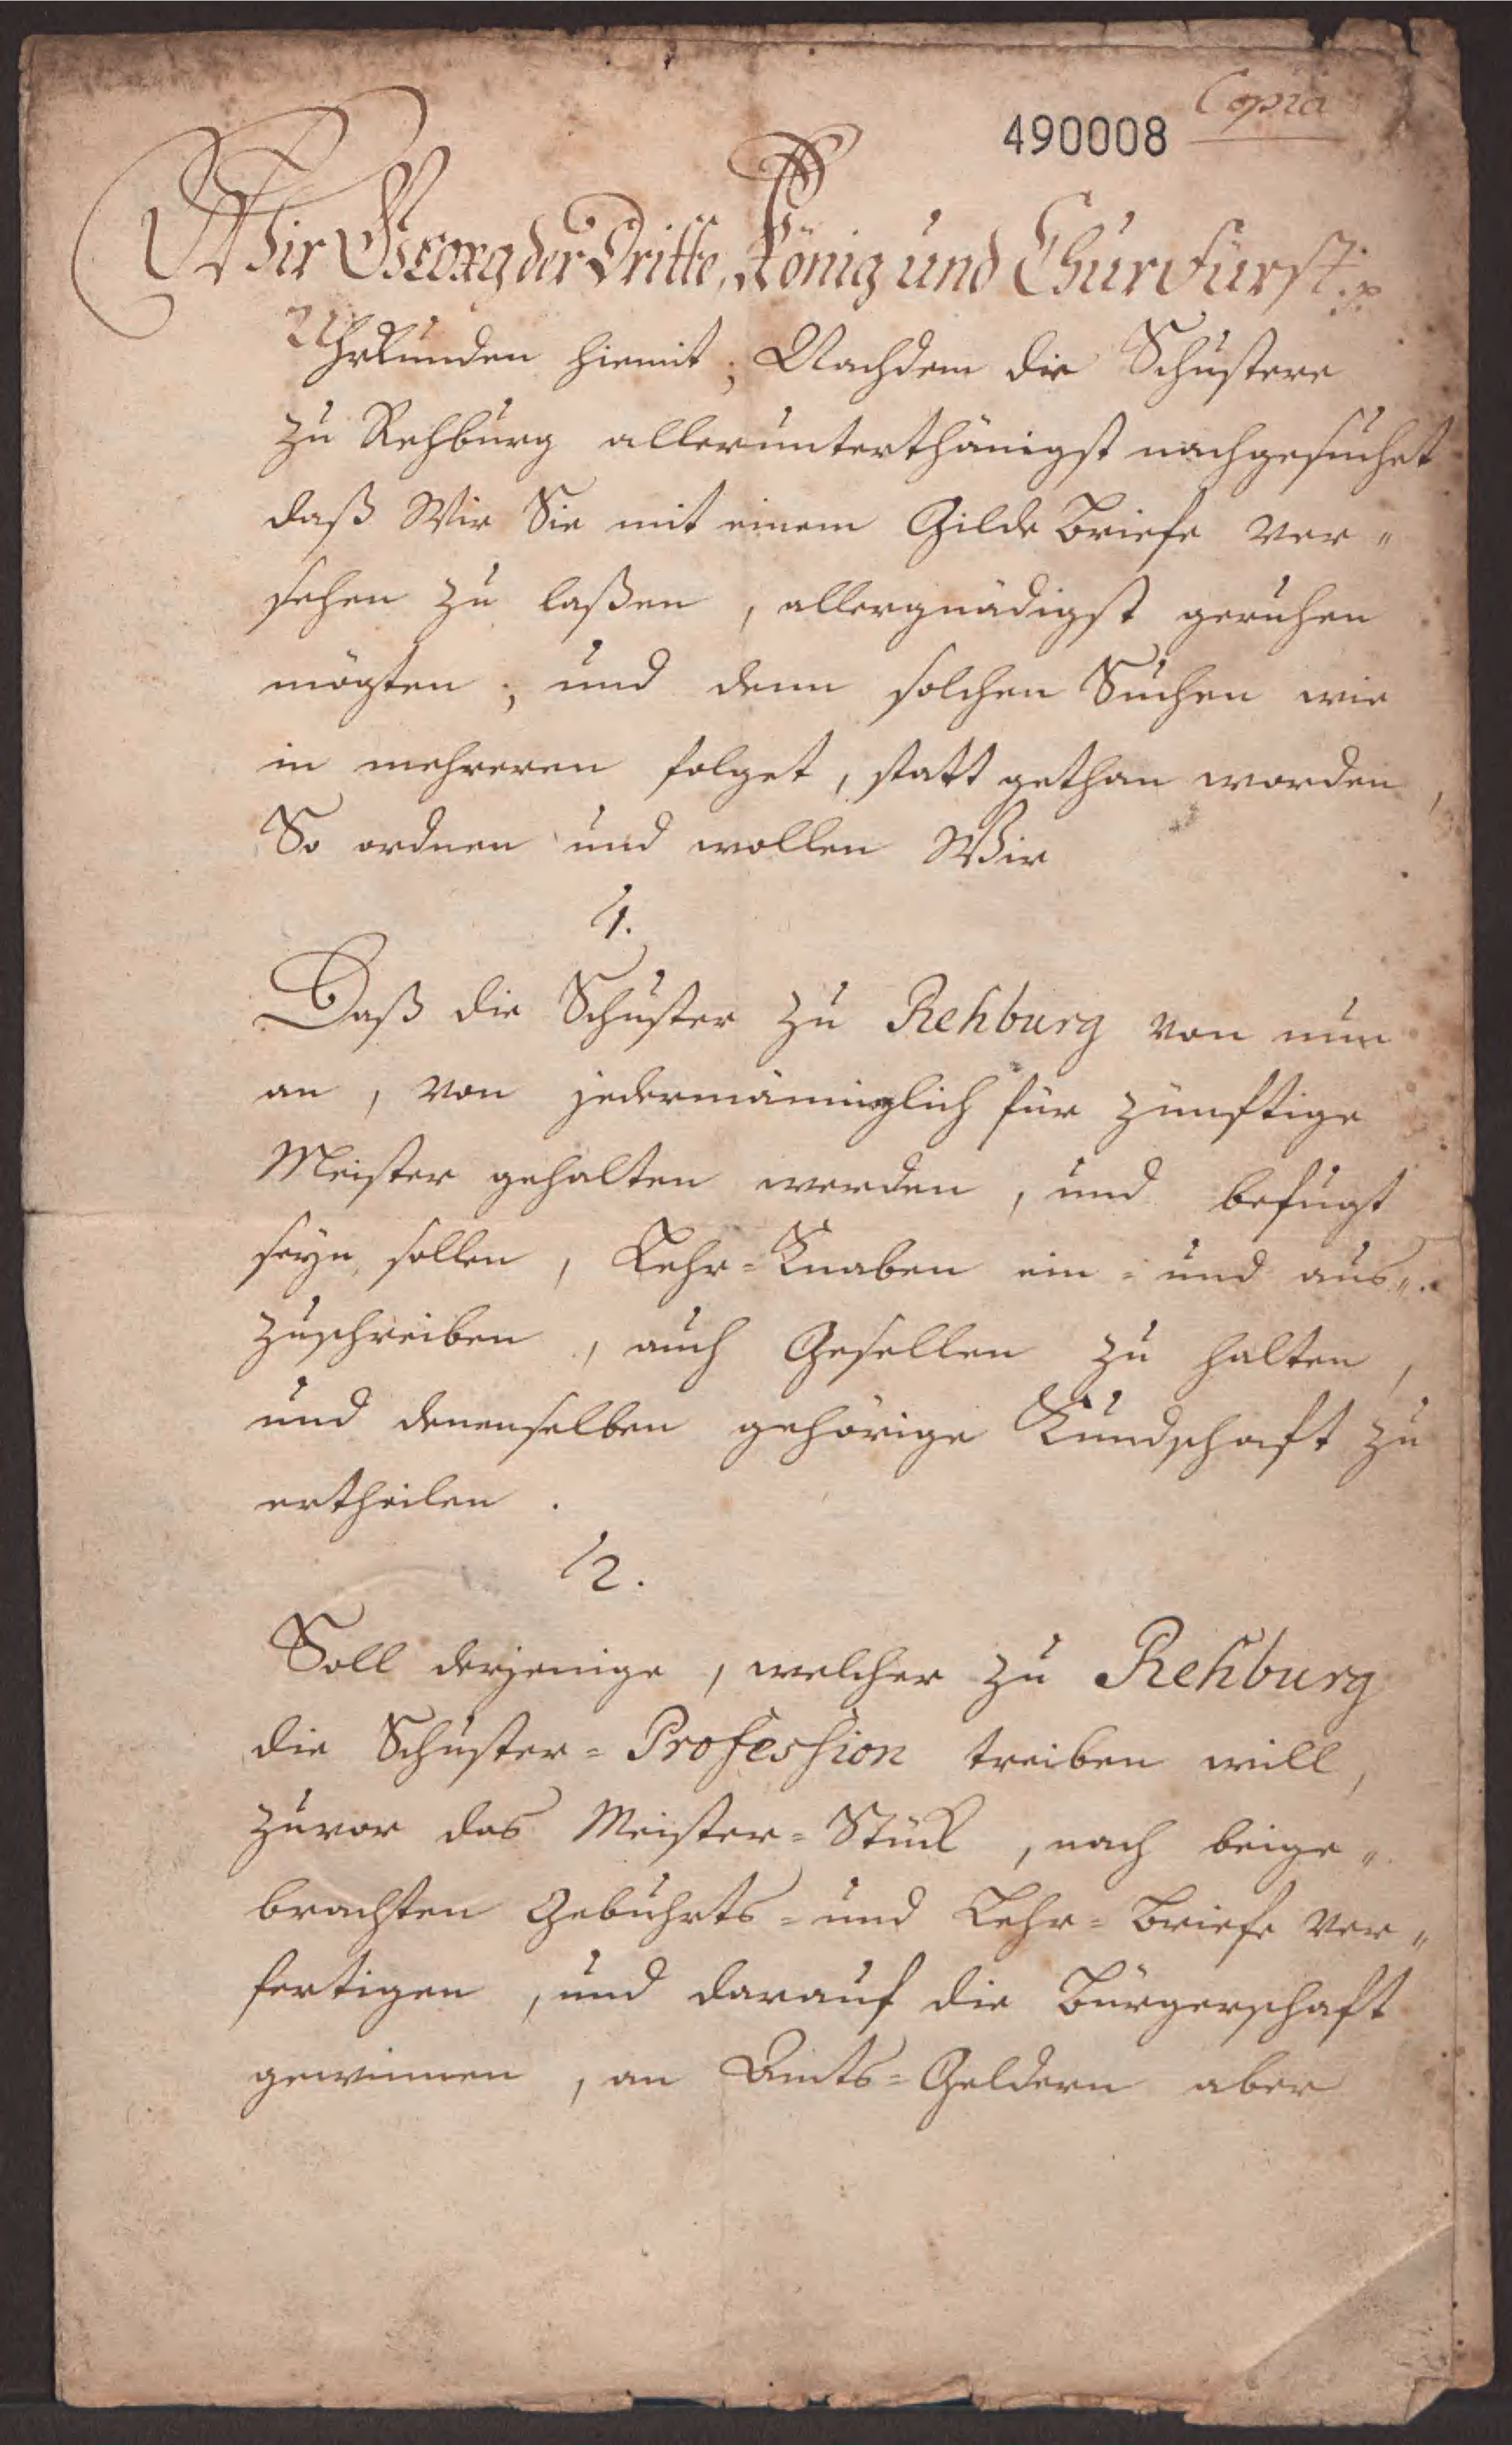 Copia
490008
Wir Georg der Dritte, König und Churfürst. p.
Uhrkunden hiemit; Nachdem die Schustere
zu Rehburg allerunterthänigst nachgesuchet
daß Wir Sie mit einem Gilde Briefe ver„
sehen zu laßen, allergnädigst geruhen
mögten; und denn solchen Suchen wie
in mehreren folget, statt gethan worden,
So ordnen und wollen Wir
1.
Daß die Schuster zu Rehburg von nun
an, von jedermänniglich für zünftige
Meister gehalten werden, und befugt
seyn sollen, Lehr=Knaben ein= und aus„
zuschreiben, auch Gesellen zu halten,
und denenselben gehörige Kundschaft zu
ertheilen.
2.
Soll derjenige, welcher zu Rehburg
die Schuster=Profession treiben will,
zuvor das Meister=Stück, nach beige„
brachten Gebuhrts= und Lehr=Briefe ver„
fertigen, und darauf die Bürgerschaft
gewinnen, an Amts=Geldern aber